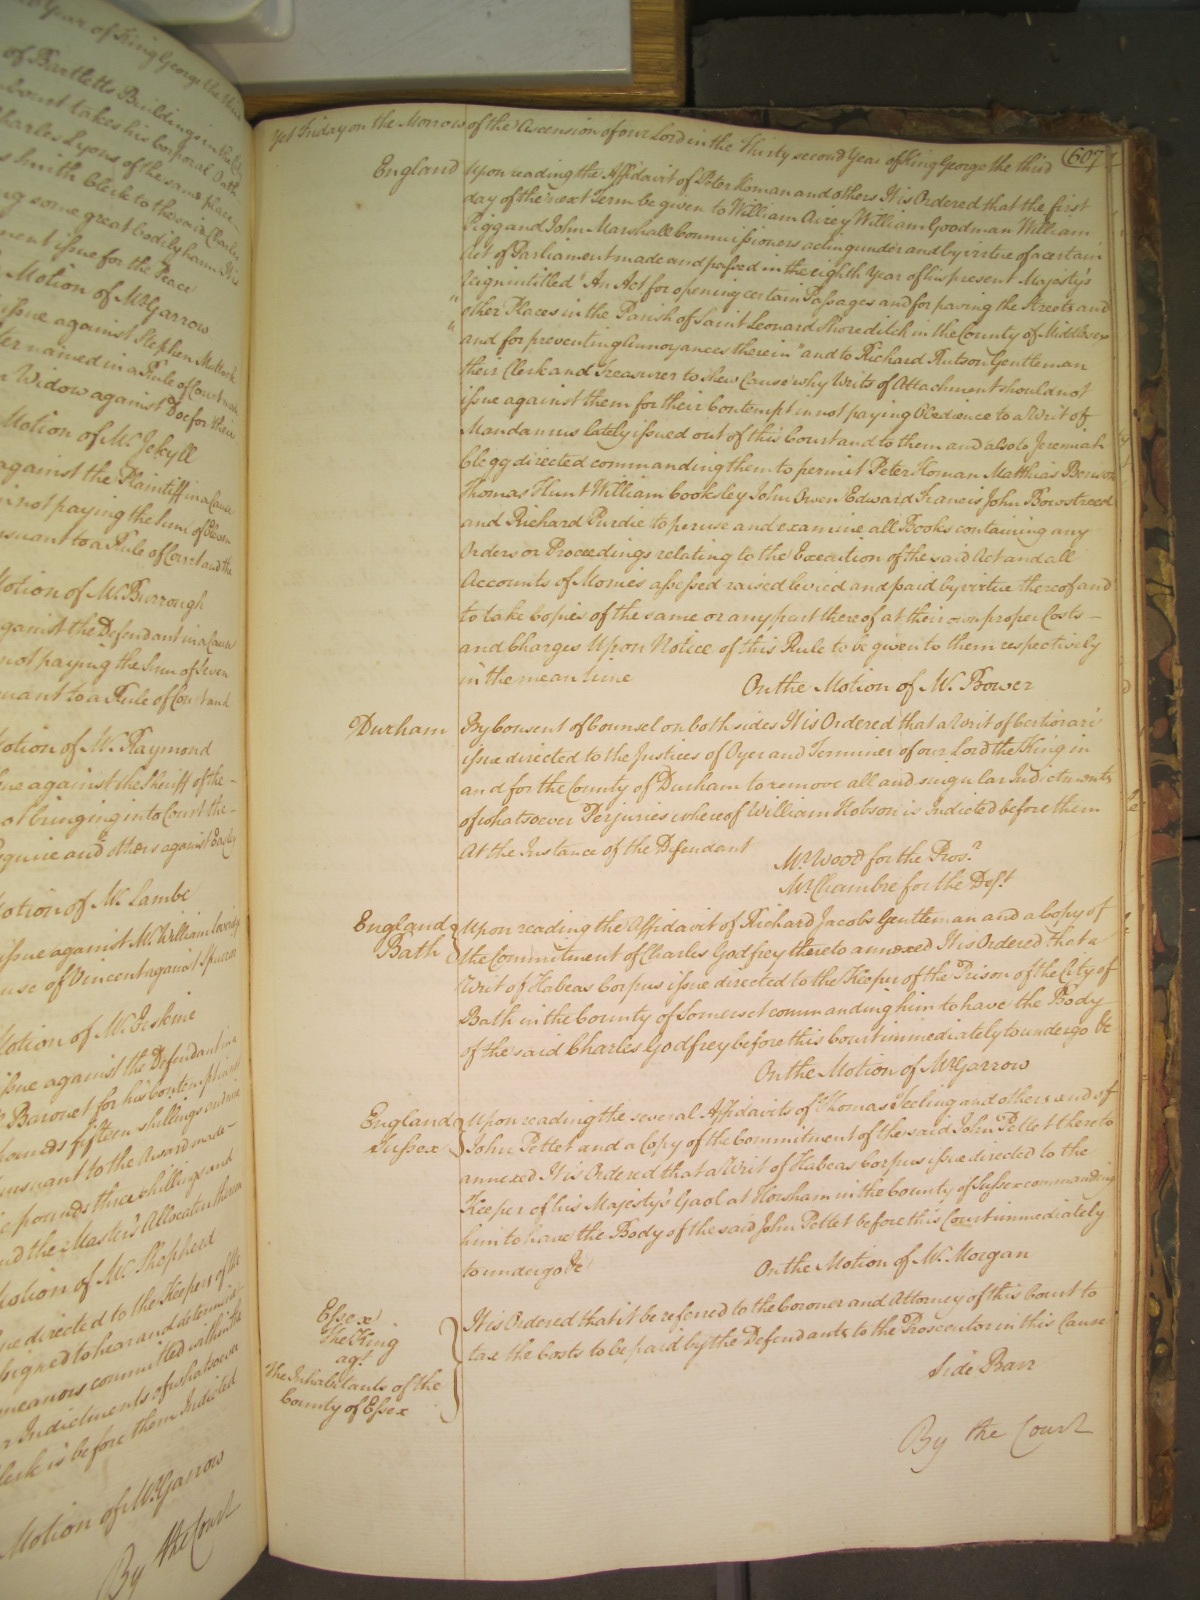 Year of King George the third
of Bartletts Buildings in the City
takes his Corporal Oath
Charles Lyons of the same place
Smith Clerk to the said Charles
some great bodily harm It is
ment issue for the Peace
Motion of Mr. Garrow
issue against Stephen
named in a Rule of Court made
Widow against Doe for their
Motion of Mr. Jekyll
against the Plaintiff in a Cause
in not paying the Sum of Eleven
suant to a Rule of Court and the
Motion of Mr. Burrough
against the Defendant in a Cause
not paying the Sum of Seven
suant to a Rule of Court and
Motion of Mr. Raymond
sue against the Sheriff of the
not bringing into Court the
Esquire and others against
Motion of Mr. Lambe
issue against Mr. William
use of Vincent against Spurrer
Motion of Mr. Erskine
issue against the Defendant in a
Baronet for his Contempt in
pounds fifteen shillings and nine
pursuant to the Award made
pounds three shillings and
and the Masters Allocatur thereon
Motion of Mr. Shepherd
sue directed to the Keepers of the
ssigned to hear and determine
meanors committed within the
or Indictments of whatsoever
Clerk is before them Indicted
Motion of Mr. Garrow
By the Court
Yet Friday on the Morrow of the Ascension of our Lord in the Thirty second Year of King George the third (607
England Upon reading the Affidavit of Peter Homan and others It is Ordered that the first
day of the next Term be given to William Avrey William Goodman William
Pigg and John Marshall Commissioners acting under and by virtue of a certain
Act of Parliament made and passed in the eighth Year of his present Majesty's
Reign intitled "An Act for opening certain Passages and for paving the Streets and
" other Places in the Parish of Saint Leonard Shoreditch in the County of Middlesex
" and for preventing Annoyances therein" and to Richard Hutson Gentleman
their Clerk and Treasurer to shew Cause why Writs of Attachment should not
issue against them for their Contempt in not paying Obedience to a Writ of
Mandamus lately issued out of this Court and to them and also to Jeremiah
Clegg directed commanding them to permit Peter Homan Matthias Benson
Thomas Hunt William Cooksley John Owen Edward Francis John Bowstreed
and Richard Purdie to peruse and examine all Books containing any
Orders or Proceedings relating to the Execution of the said Act and all
Accounts of Monies assessed raised levied and paid by virtue thereof and
to take Copies of the same or any part thereof at their own proper Costs
and Charges Upon Notice of this Rule to be given to them respectively
in the mean time On the Motion of Mr. Bower
Durham By Consent of Counsel on both sides It is Ordered that a Writ of Certiorari
issue directed to the Justices of Oyer and Terminer of our Lord the King in
and for the County of Durham to remove all and singular Indictments
of whatsoever Perjuries whereof William Hobson is Indicted before them
At the Instance of the Defendant
Mr. Wood for the Pros.r
Mr. Chambre for the Def.t
England Upon reading the Affidavit of Richard Jacobs Gentleman and a Copy of
Bath the Commitment of Charles Godfrey thereto annexed It is Ordered that a
Writ of Habeas Corpus issue directed to the Keeper of the Prison of the City of
Bath in the County of Somerset commanding him to have the Body
of the said Charles Godfrey before this Court immediately to undergo &c
On the Motion of Mr. Garrow
England Upon reading the several Affidavits of Thomas Keeling and others and of
Sussex John Pettet and a Copy of the Commitment of the said John Pettet thereto
annexed It is Ordered that a Writ of Habeas Corpus issue directed to the
Keeper of his Majesty's Gaol at Horsham in the County of Sussex commanding
him to have the Body of the said John Pettet before this Court immediately
to undergo &c On the Motion of Mr. Morgan
Essex
The King
ag.t
The Inhabitants of the
County of Essex
It is Ordered that it be referred to the Coroner and Attorney of this Court to
tax the Costs to be paid by the Defendants to the Prosecutor in this Cause
Side Barr
By the Court